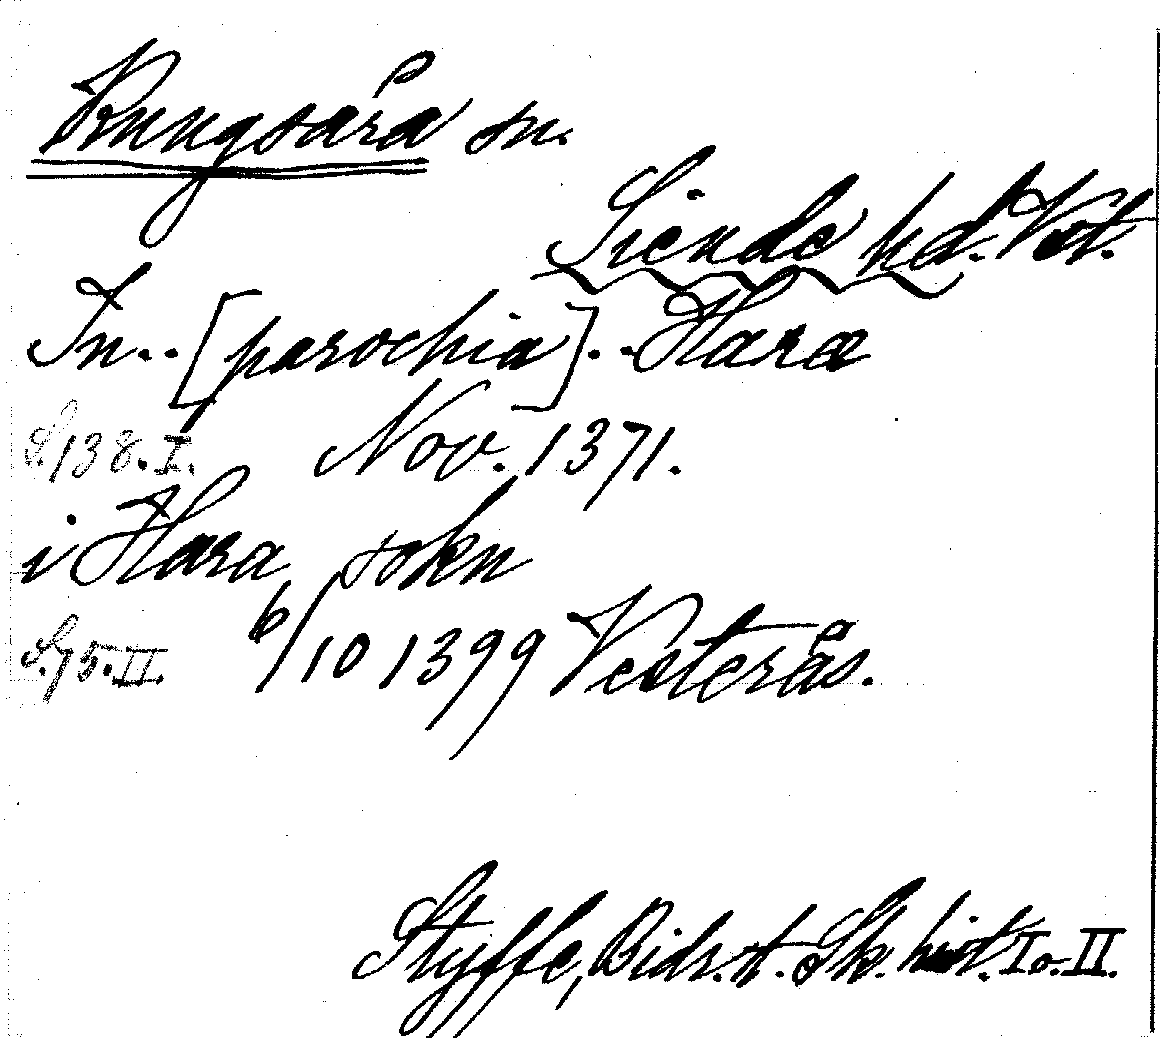 Kungsåra sn.
Siende hd. Vst.
In.. [parochia].. Haræ
S. 138. I. Nov. 1371.
i Hara sokn
S. 75. II. 6/10 1399 Vesterås.
Styffe, Bidr. t. Sk. hist. I o. II.